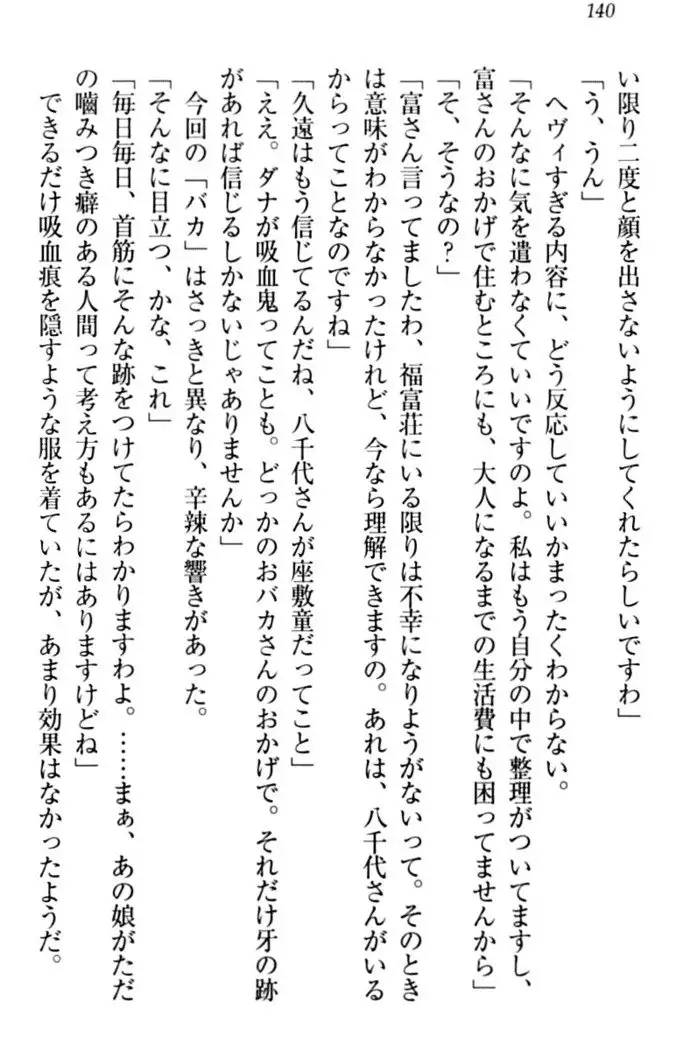 140
い限り二度と顔を出さないようにしてくれたらしいですわ」
「う、うん」
ヘヴィすぎる内容に、どう反応していいかまったくわからない。
「そんなに気を遣わなくていいですのよ。私はもう自分の中で整理がついてますし、
富さんのおかげで住むところにも、大人になるまでの生活費にも困ってませんから」
「そ、そうなの？」
「富さん言ってましたわ、福富荘にいる限りは不幸になりようがないって。そのとき
は意味がわからなかったけれど、今なら理解できますの。あれは、八千代さんがいる
からってことなのですね」
「久遠はもう信じてるんだね、八千代さんが座敷童だってこと」
「ええ。ダナが吸血鬼ってことも。どっかのおバカさんのおかげで。それだけ牙の跡
があれば信じるしかないじゃありませんか」
今回の「バカ」はさっきと異なり、辛辣な響きがあった。
「そんなに目立つ、かな、これ」
「毎日毎日、首筋にそんな跡をつけてたらわかりますわよ。……まぁ、あの娘がただ
の噛みつき癖のある人間って考え方もあるにはありますけどね」
できるだけ吸血痕を隠すような服を着ていたが、あまり効果はなかったようだ。